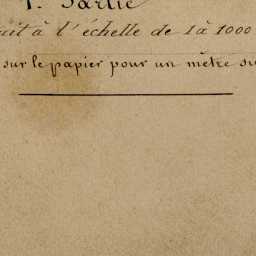 1. Partie
uit à l'échelle de 1 à 1000
sur le papier pour un mètre su